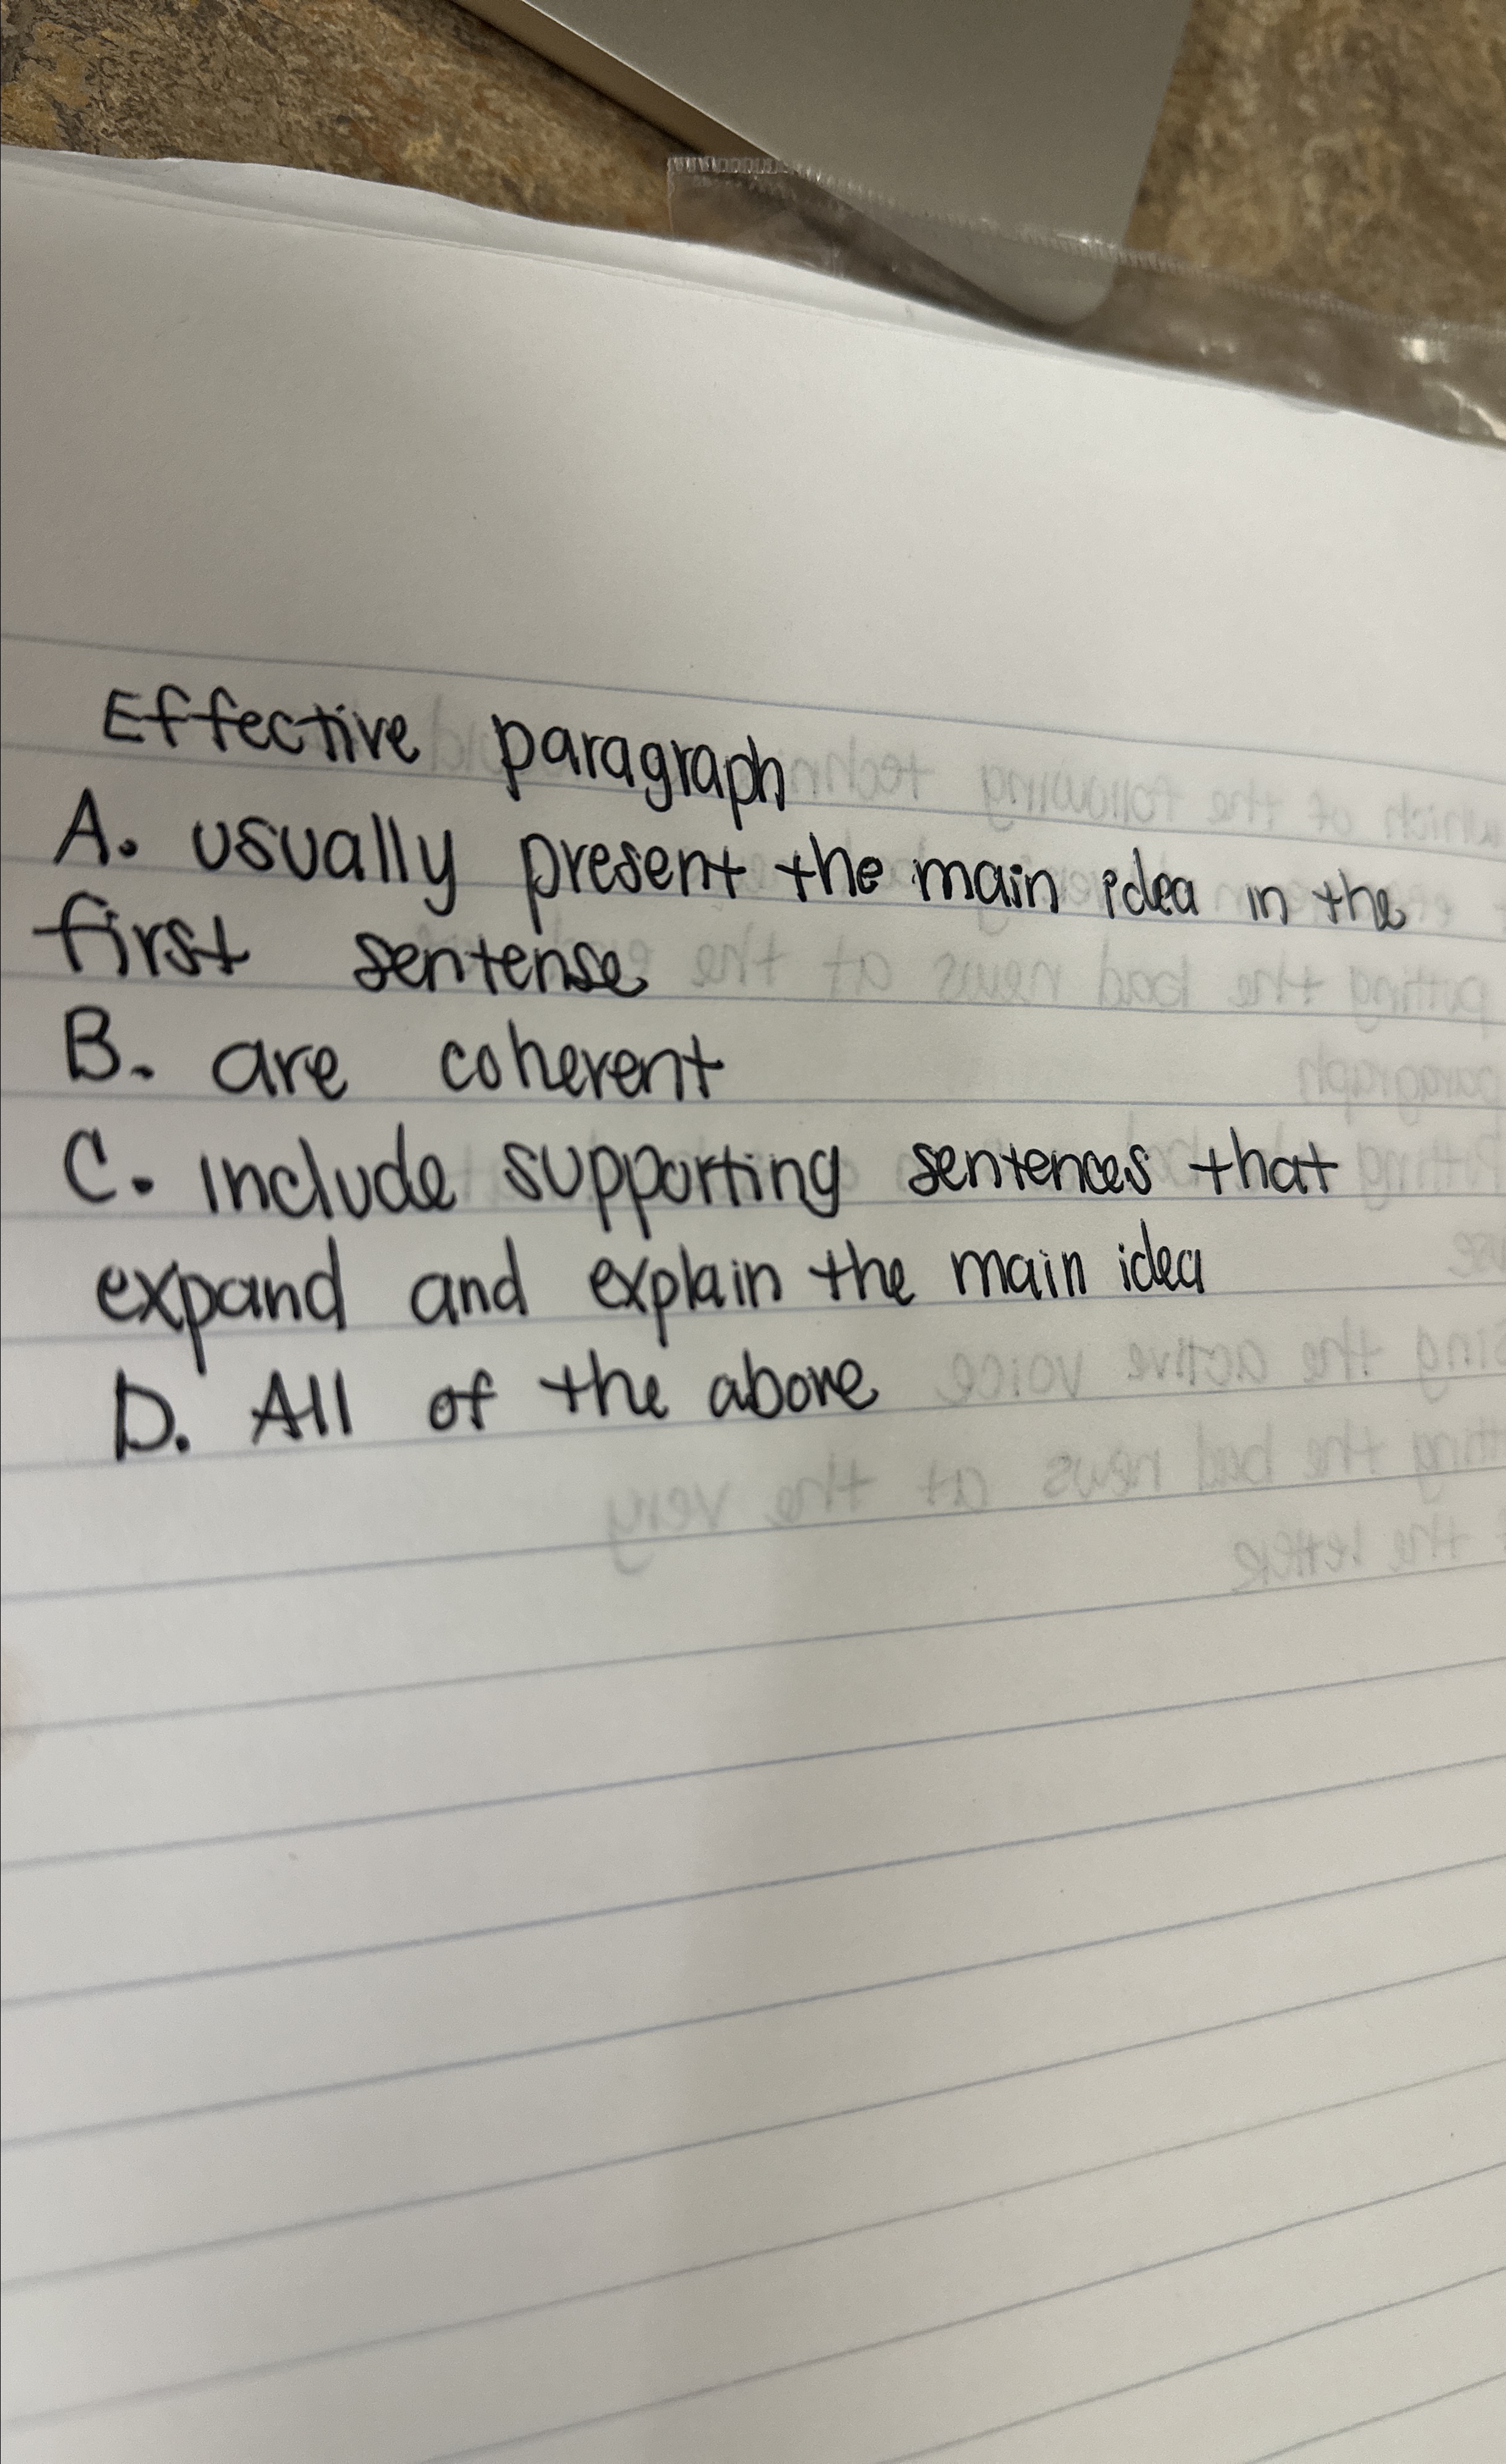 Effective paragraph
A. usually present the main idea in the
first sentense
B. are coherent
C. include supporting sentences that
expand and explain the main idea
D. All of the above